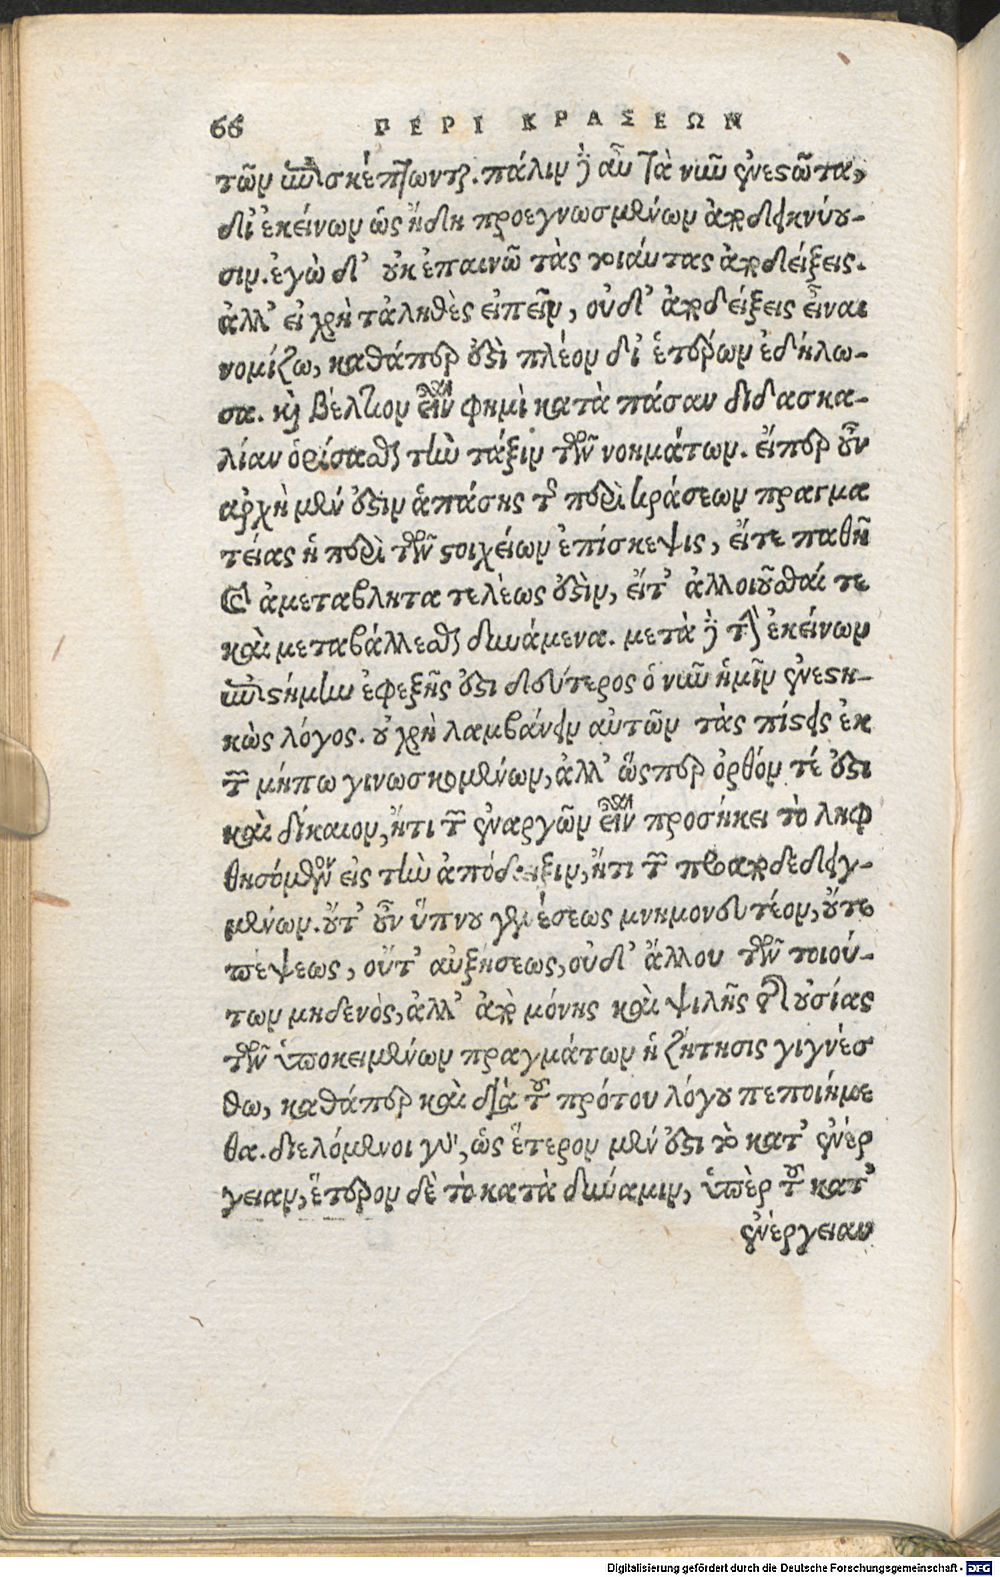 66 ΠΕΡΙ ΚΡΑΣΕΩΝ
τῶν ἐπισκέπτονται. πάλιν δὲ αὖ τὰ νῦν ἐνεστῶτα,
δι’ ἐκείνων ὡς ἤδη προεγνωσμένων ἀποδεικνύου-
σιν. ἐγὼ δ’ οὐκ ἐπαινῶ τὰς τοιάυτας ἀποδείξεις.
ἀλλ’ εἰ χρὴ τἀληθὲς εἰπεῖν, οὐδ’ ἀποδείξεις εἶναι
νομίζω, καθάπερ ἐπὶ πλέον δι’ ἑτέρων ἐδήλω-
σα. καὶ βέλτιον εἶναι φημὶ κατὰ πάσαν διδασκα-
λίαν ὁρίσασθαι τὴν τάξιν τῶν νοημάτων. εἴπερ οὖν
αρχὴ μέν ἐστιν ἁπάσης τῆς περὶ κράσεων πραγμα
τείας ἡ περὶ τῶν στοιχείων ἐπίσκεψις, εἴτε παθῆ
καὶ ἀμεταβλητα τελέως ἐστὶν, εἴτ’ ἀλλοιοῦσθαί τε
καὶ μεταβάλλεσθαι δυνάμενα. μετὰ δὲ τὴν ἐκείνων
ἐπιστήμην ἐφεξῆς ἐστι δεύτερος ὁ νῦν ἡμῖν ἐνεστη-
κὼς λόγος. οὐ χρὴ λαμβάνειν αὐτῶν τὰς πίστεις ἐκ
τῶν μήπω γινωσκομένων, ἀλλ’ ὥσπερ ὀρθόν τέ ἐστι
καὶ δίκαιον, ἤτι τῶν ἐναργῶν εἶναι προσήκει τὸ ληφ
θησόμενον εἰς τὴν ἀπόδειξιν, ἤτι τῶν προαποδεδειγ-
μένων. οὔτ’ οὖν ὕπνου γενέσεως μνημονευτέον, οὔτε
πέψεως, οὔτ’ αὐξήσεως, οὐδ’ ἄλλου τῶν τοιού-
των μηδενὸς, ἀλλ’ ἀπὸ μόνης καὶ ψιλῆς τῆς οὐσίας
τῶν ὑποκειμένων πραγμάτων ἡ ζήτησις γιγνέσ
θω, καθάπερ καὶ διὰ τοῦ πρότου λόγου πεποιήμε
θα. διελόμενοι γὰρ, ὡς ἕτερον μέν ἐστι τὸ κατ’ ἐνέρ
γειαν, ἕτερον δὲ τὸ κατὰ δυνάμιν, ὑπὲρ τοῦ κατ’
ἐνέργειαν
Digitalisierung gefördert durch die Deutsche Forschungsgemeinschaft - DFG